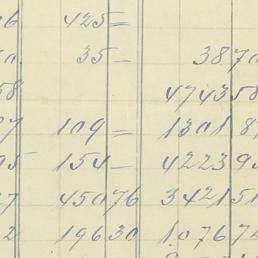 26 425 =
0. 35 — 3870
58 474358
27 109 = 13018
95 154 — 422395
27 45076 342151
2 19630 107674